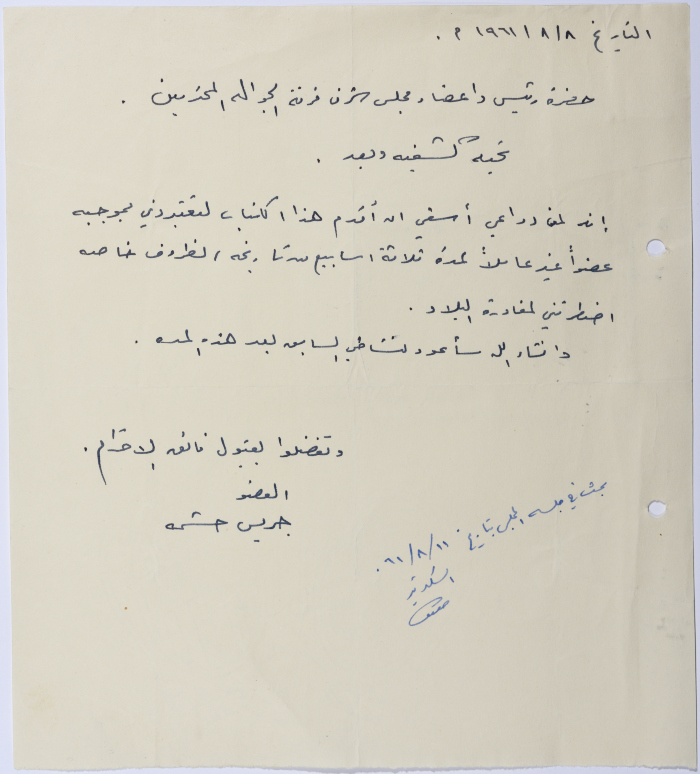 التاريخ ٨/٨/١٩٦١ م .
حضرة رئيس واعضاء مجلس شرف فرقة الجواله المحترمين .
تحيه كشفيه وبعد .
إنه لمن دواعي أسفي ان أقدم هذا الكتاب لتعتبروني بموجبه
عضواً غير عاملاً لمدة ثلاثة اسابيع من تاريخه لظروف خاصه
اضطرتني لمغادرة البلاد .
وانشاء الله سأعود لنشاطي السابق بعد هذه المده .
وتفضلوا بقبول فائق الاحترام .
العضو
جريس حشمه
بحث في جلسة المجلس بتاريخ ١١/٨/٦١ .
السكرتير